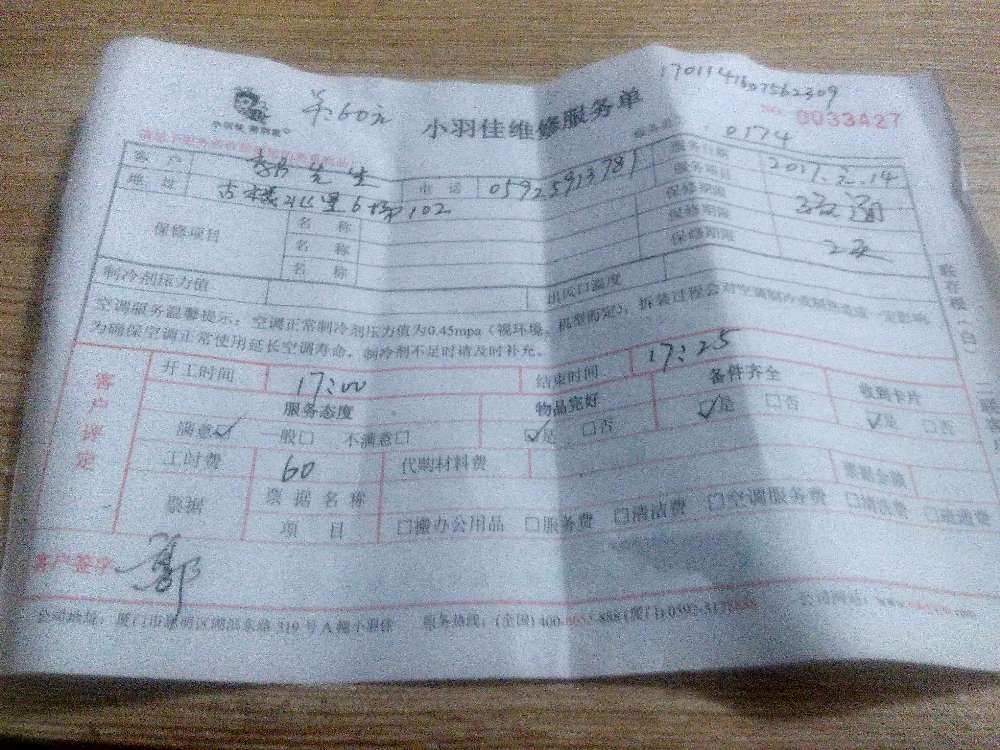 1701141607562309
共:60元
小羽佳维修服务单
NO. 0033427
0574
客 户 郭先生 电 话 05925913781 服务日期 2017.元.14
地 址 6 102 服务项目 疏通
保修项目 名 称 保修期限 2天
名 称 保修期限
名 称 保修期限
制冷剂压力值 出风口温度
空调服务温馨提示:空调正常制冷剂压力值为0.45mpa(视环境、机型而定);拆装过程会对空调制冷
为确保空调正常使用延长空调寿命,制冷剂不足时请及时补充。
客户评定
开工时间 17:00 结束时间 17:25
服务态度 物品完好 备件齐全 收到卡片
满意☑ 一般□ 不满意□ ☑是 □否 ☑是 □否 ☑是 □否
工时费 60 代购材料费
票据 票据名称 票据金额
项 目 □搬办公用品 □服务费 □清洁费 □空调服务费 □清洗费 □疏通费
客户签字 郭
公司地址:厦门市思明区湖滨东路 319 号 A 幢小羽佳 服务热线:(全国) 400- -888 (厦门) 0592- 公司网站:www. .com